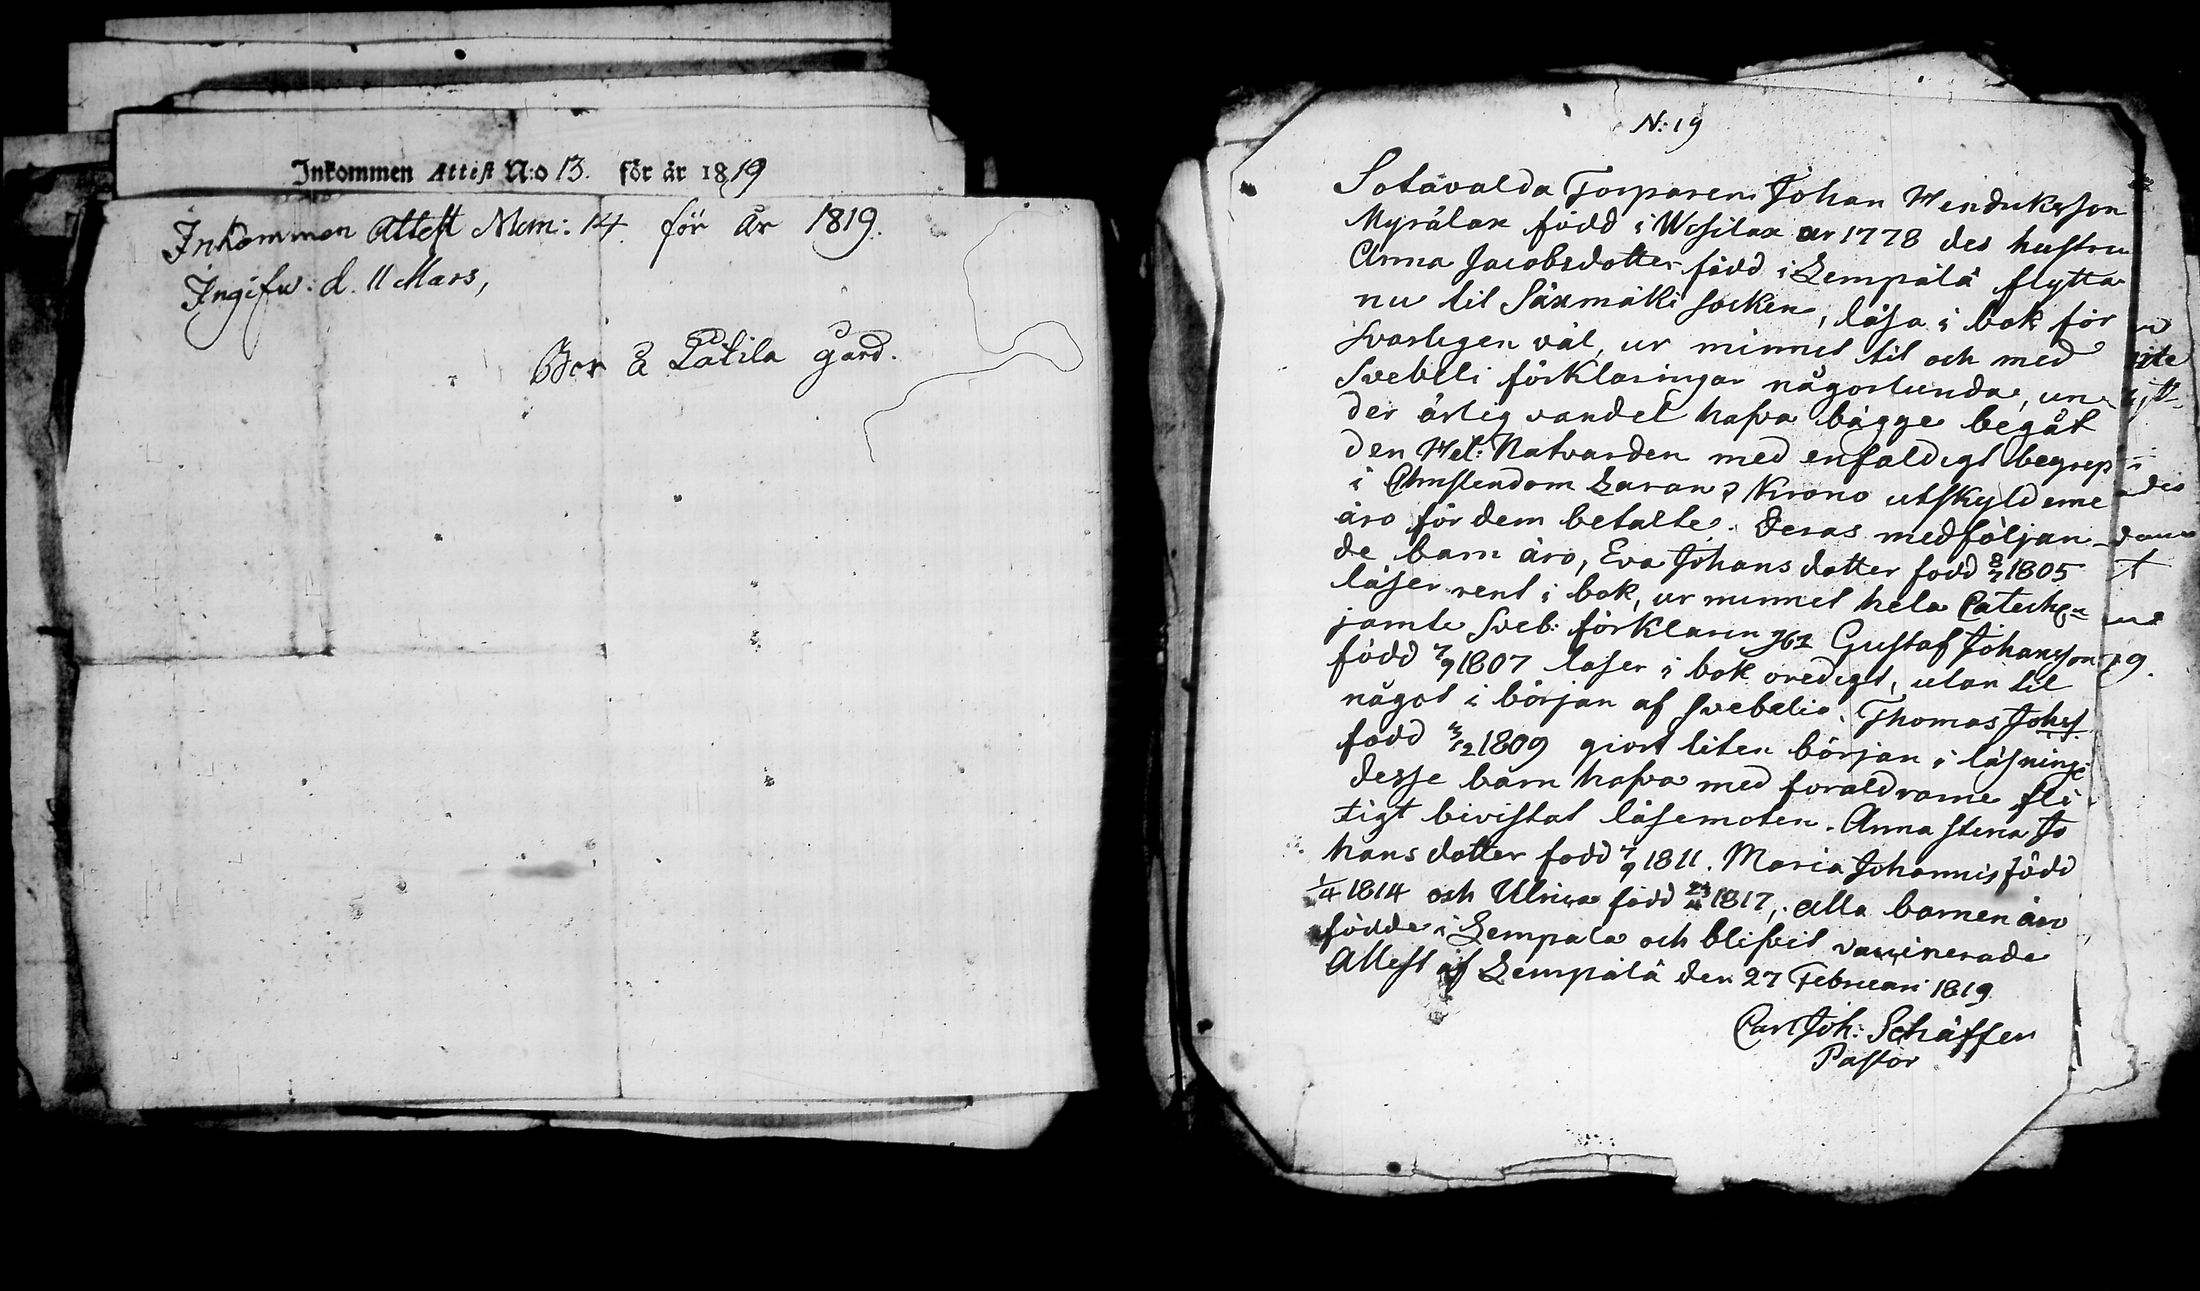 Inkommen Attest N:o 13. för år 1819
Inkommen Attest Num: 14. för år 1819.
Ingifw: d. 11 Mars,
Bor å Latila gård.
N: 19
Sotavalda Torparen Johan Hendriksson
Myrälax född i Wesilax år 1778 des hustru
Anna Jacobsdotter född i Lempälä flytta
nu til Säxmäki socken, läsa i bok för
svarligen väl, ur minnet til och med
Svebeli förklaringar någorlunda, un-
der ärlig vandel hafva bägge begåt
den Hel: Natvarden med enfaldigt begrep
i Christendom Krono utskylderne
äro för dem betalte. Deras medföljan-
de barn äro, Eva Johansdotter född 8/7 1805
läser rent i bok, ur minnet hela Cateches
jamte Sveb: förklaring Gustaf Johansson
född 7/9 1807 laser i bok oredigt, utan til
något i början af Svebelio. Thomas Johs
född 1809 giort liten början i läsning
desse barn hafva med foraldrarne fli
tigt bivistat läsemoten. Anna Stena Jo
hansdotter fodd 7/9 1811. Maria Johannis född
1/4 1814 och Ulrica född 1817, alla barnen äro
födde i Lempala och blifvit vaccinerade
Attest af Lempälä den 27 Februari 1819
Carl Joh: Schäffer
Pastor